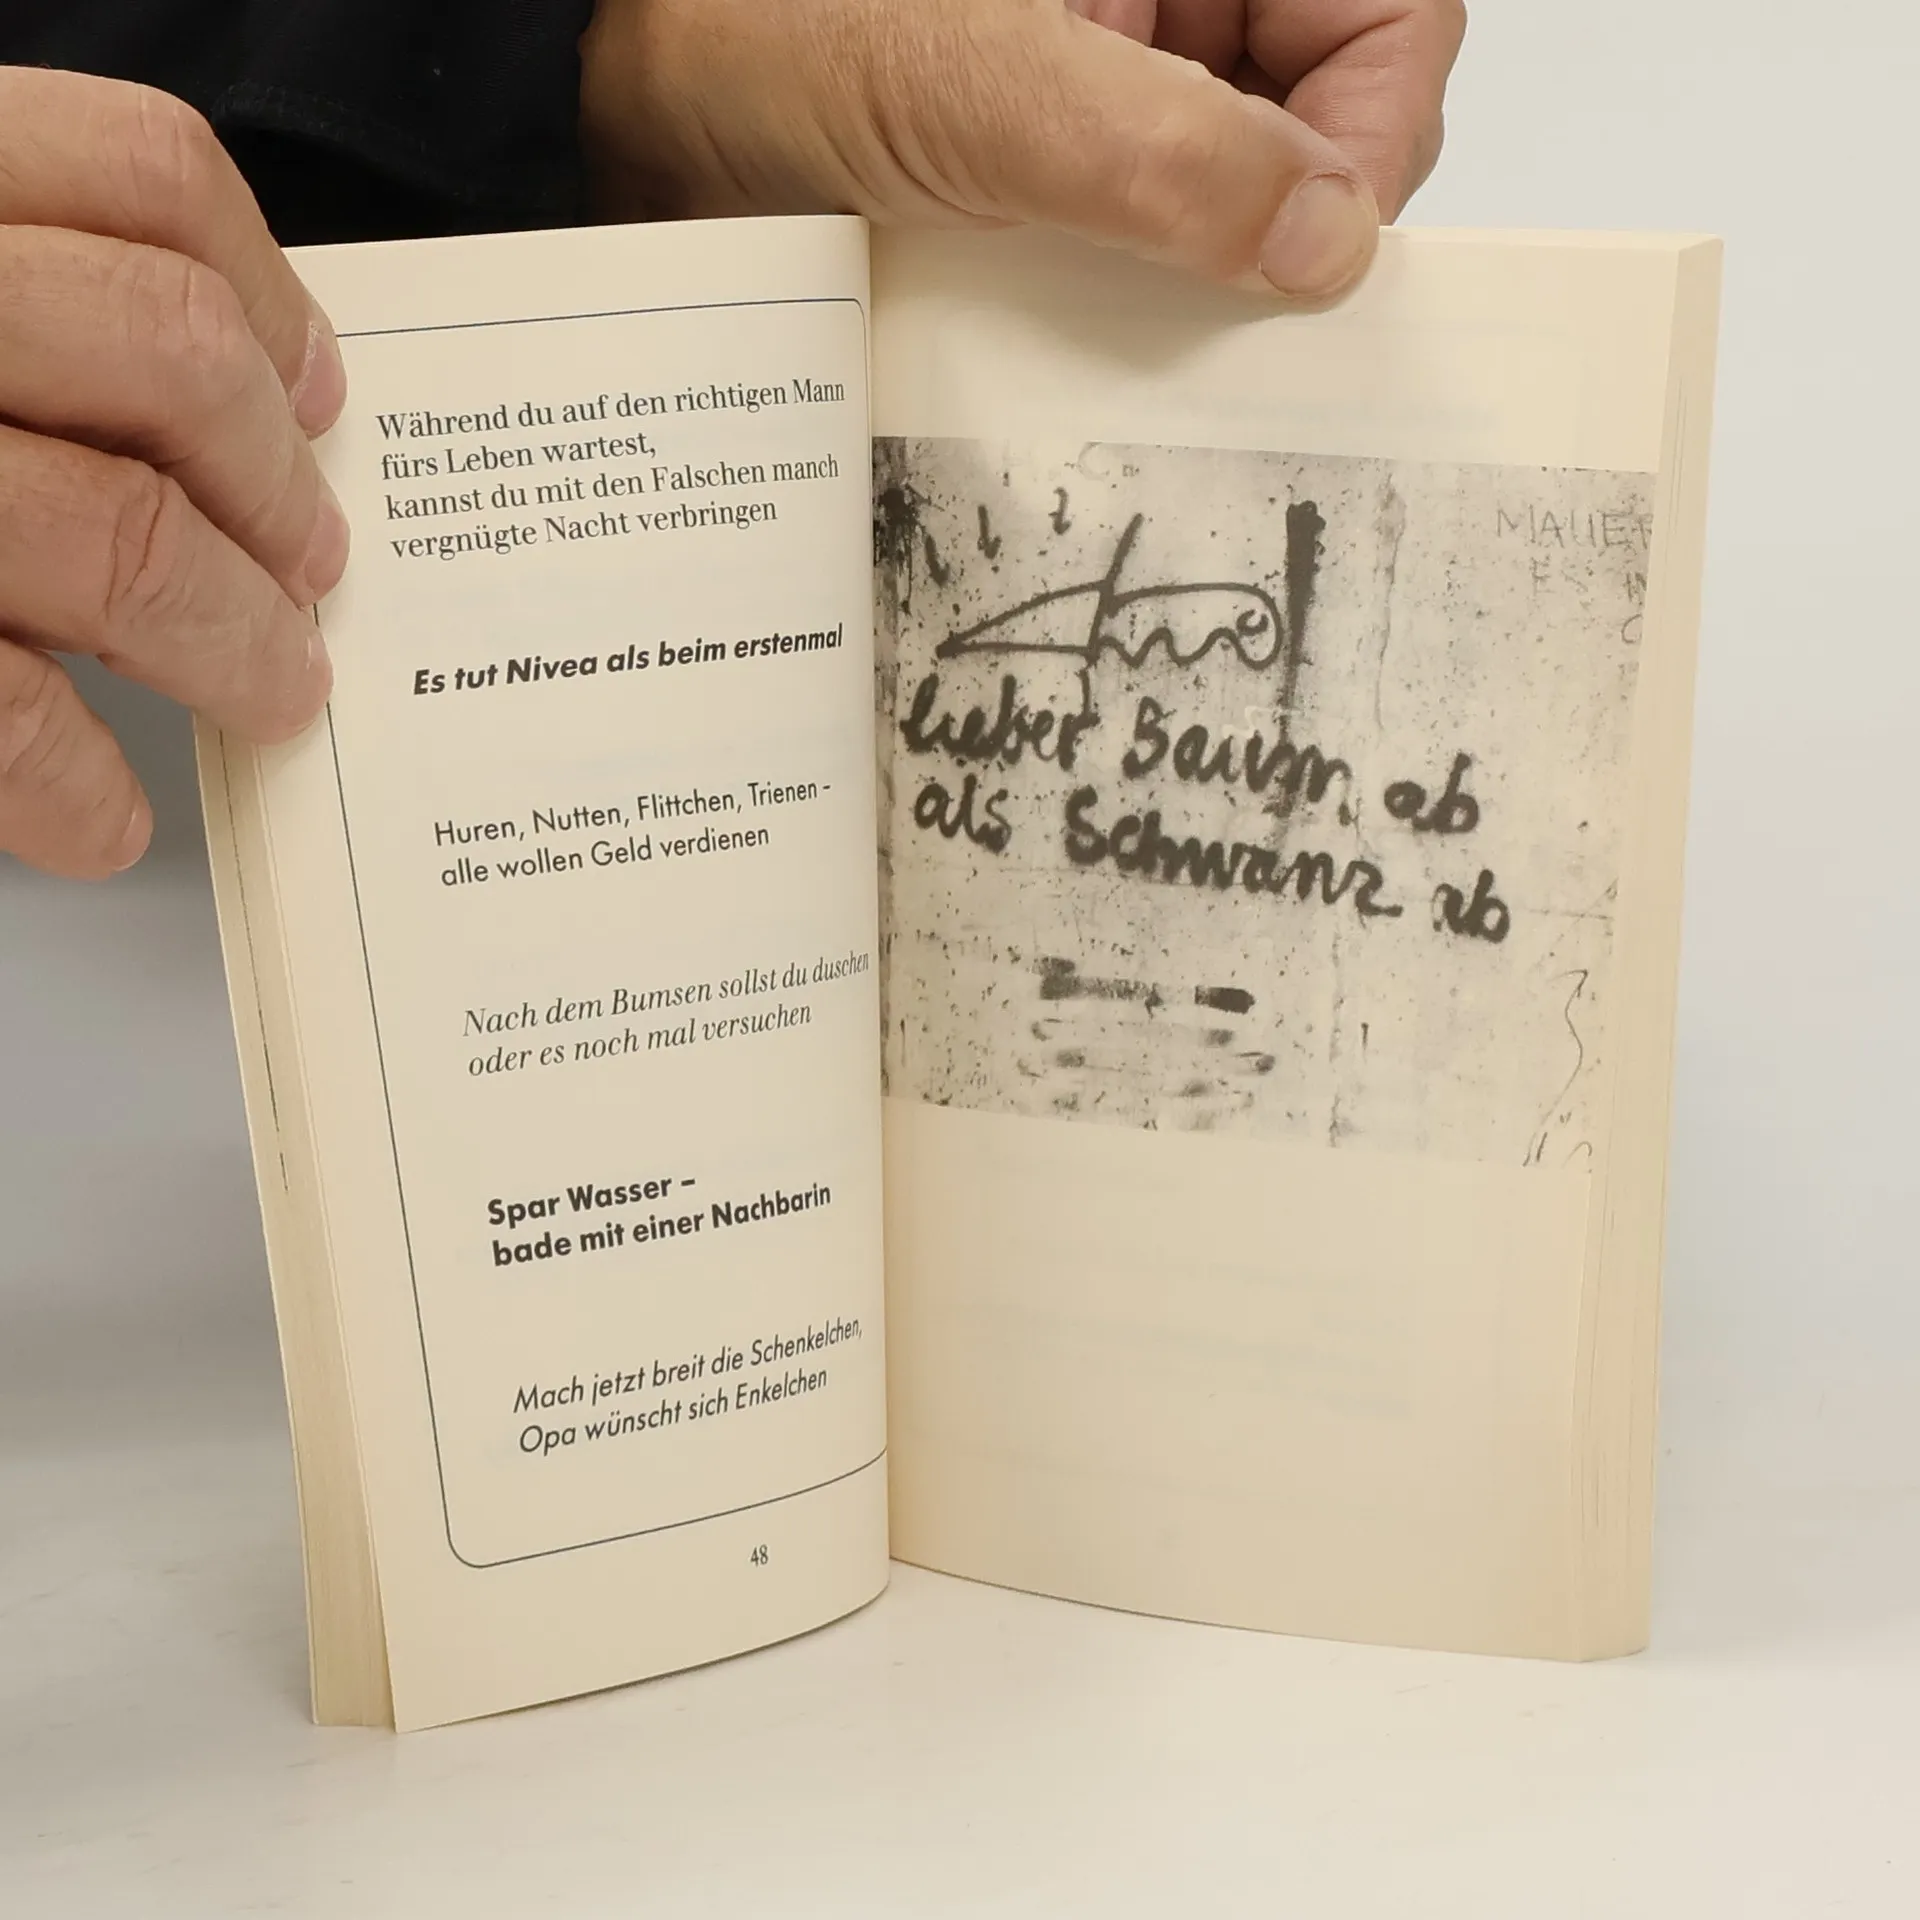 Während du auf den richtigen Mann
fürs Leben wartest,
kannst du mit den Falschen manch
vergnügte Nacht verbringen
Es tut Nivea als beim erstenmal
Huren, Nutten, Flittchen, Trienen –
alle wollen Geld verdienen
Nach dem Bumsen sollst du duschen
oder es noch mal versuchen
Spar Wasser –
bade mit einer Nachbarin
Mach jetzt breit die Schenkelchen,
Opa wünscht sich Enkelchen
48
MAUER
ES
lieber Baum ab
als Schwanz ab